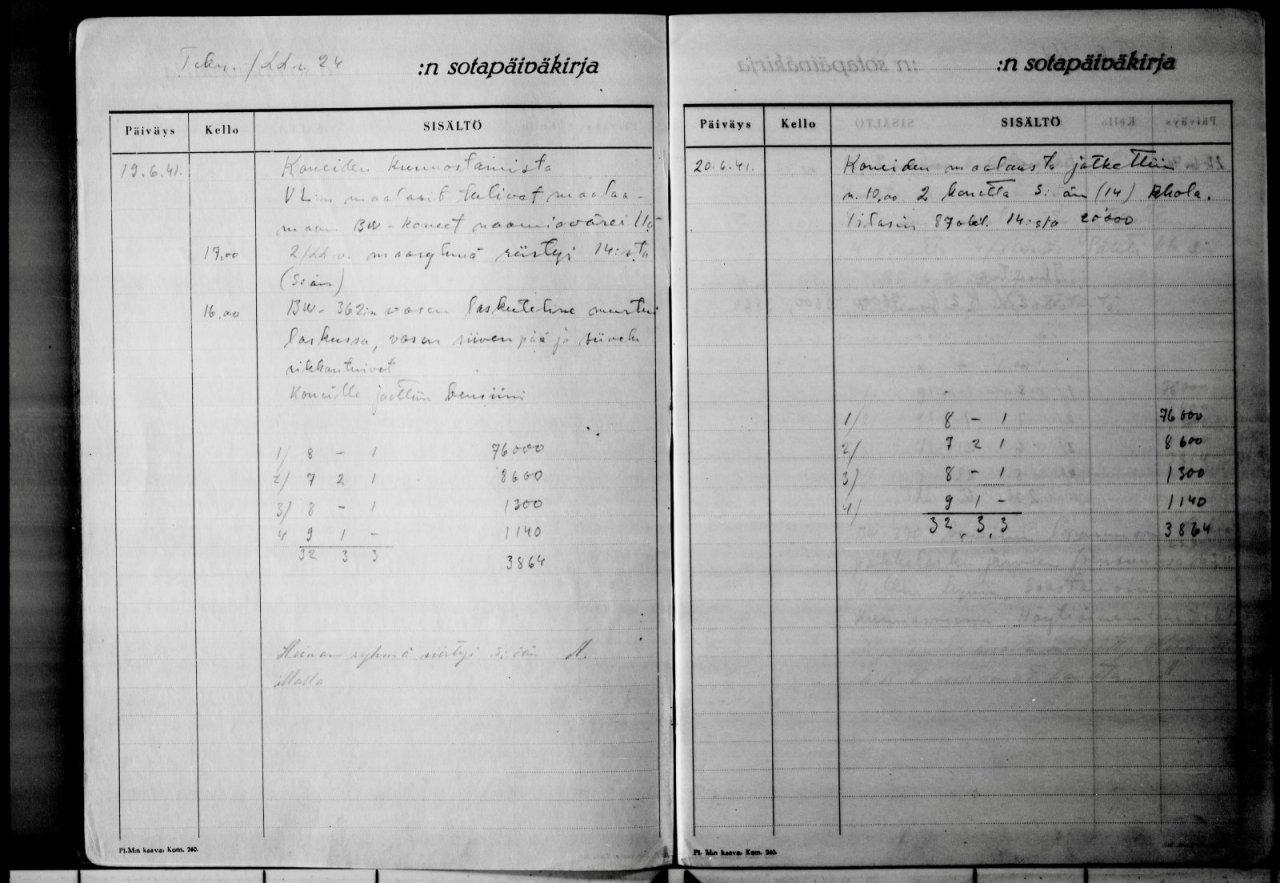 /LLv 24 :n sotapäiväkirja
Päiväys Kello SISÄLTÖ
19.6.41. Koneiden kunnostamista
VL:n maalarit tulivat maalaa-
maan BW-koneet naamiovärei
19,00 2/LLv. maaryhmä siirtyi 14:sta
(5:än)
16,00 BW-362:n vasen laskuteline murtui
laskussa, vasen siivenpää ja
rikkoutuivat
Koneille jaettiin bensiini
1/ 8 - 1 76000
2/ 7 2 1 8600
3/ 8 - 1 1300
4 9 1 - 1140
32 3 3 3864
ryhmä siirtyi 5:ään
illalla
Pl.M:n kaava: Kom. 260.
:n sotapäiväkirja
Päiväys Kello SISÄLTÖ
20.6.41. Koneiden maalausta jatkettiin
n. 10,00 2 konetta 5:än (14)
Tilasin 87 okt. 14:sta 20000
1/ 8 - 1 76000
2/ 7 2 1 8600
3/ 8 - 1 1300
4/ 9 1 - 1140
32, 3, 3 3864
Pl. M:n kaava: Kom. 260.